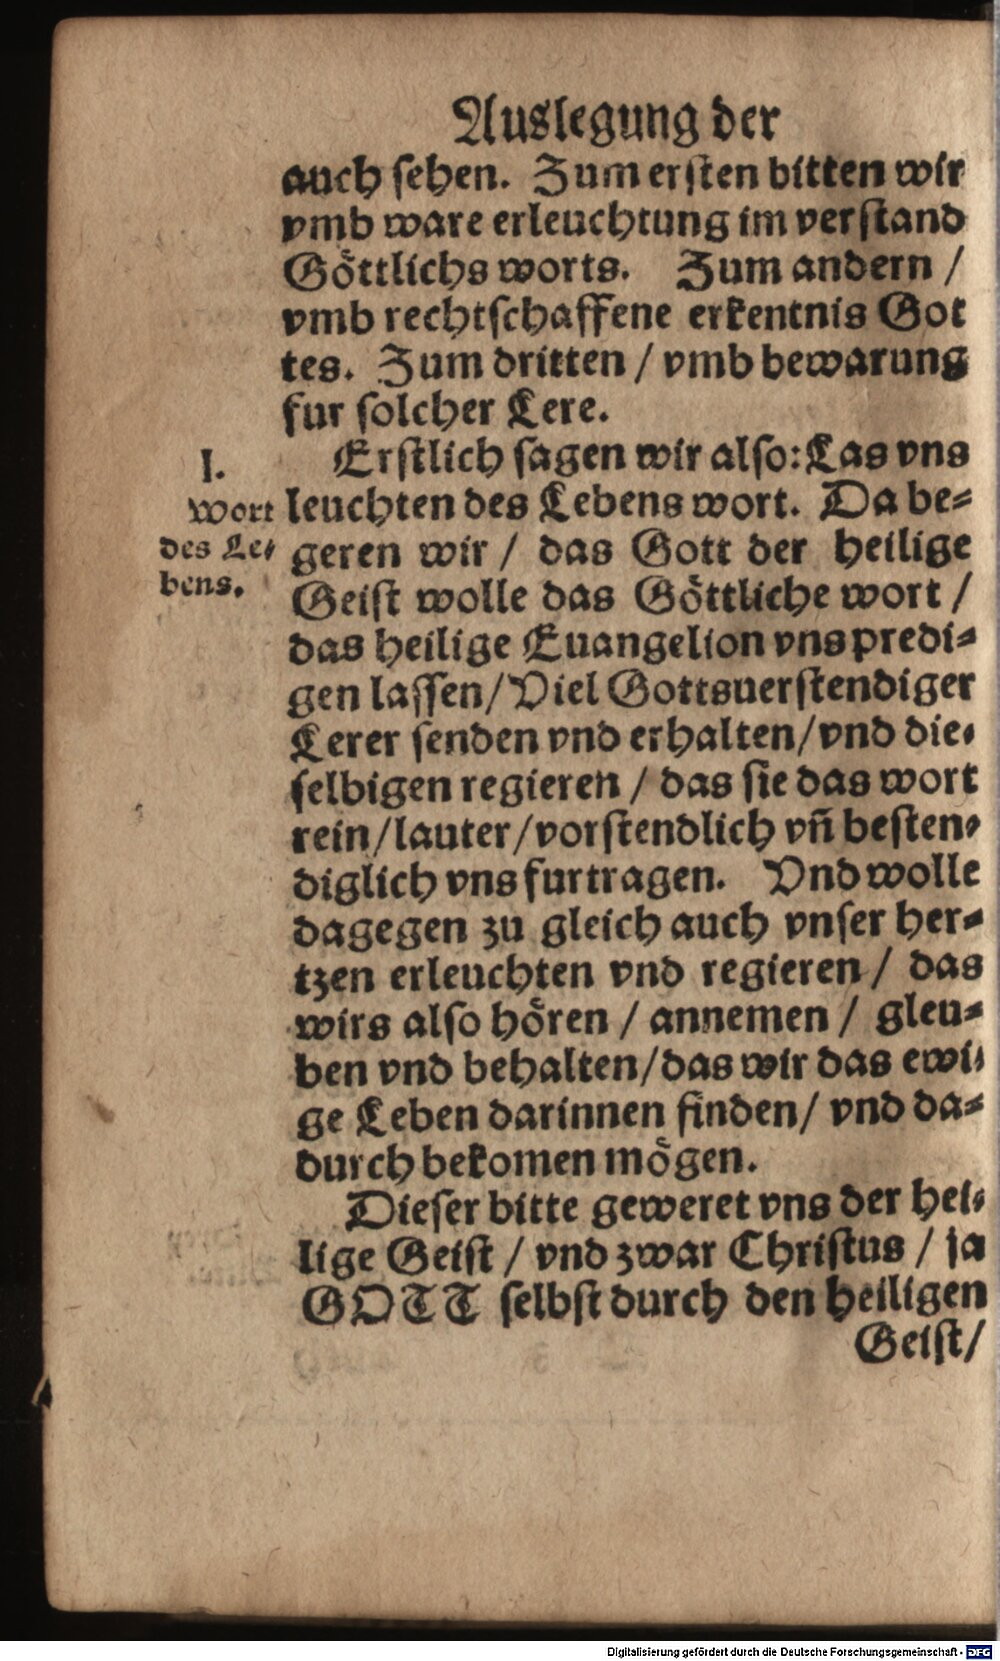 Auslegung der
auch sehen. Zum ersten bitten wir
vmb ware erleuchtung im verstand
Göttlichs worts. Zum andern /
vmb rechtschaffene erkentnis Got
tes. Zum dritten / vmb bewarung
fur solcher Lere.
I.
Wort
des Le-
bens.
Erstlich sagen wir also: Las vns
leuchten des Lebens wort. Da be-
geren wir / das Gott der heilige
Geist wolle das Göttliche wort /
das heilige Euangelion vns predi-
gen lassen / Viel Gottsuerstendiger
Lerer senden vnd erhalten / vnd die-
selbigen regieren / das sie das wort
rein / lauter / vorstendlich vñ besten-
diglich vns furtragen. Vnd wolle
dagegen zu gleich auch vnser her-
tzen erleuchten vnd regieren / das
wirs also hören / annemen / gleu-
ben vnd behalten / das wir das ewi-
ge Leben darinnen finden / vnd da-
durch bekomen mögen.
Dieser bitte geweret vns der hei-
lige Geist / vnd zwar Christus / ja
GOTT selbst durch den heiligen
Geist /
Digitalisierung gefördert durch die Deutsche Forschungsgemeinschaft - DFG